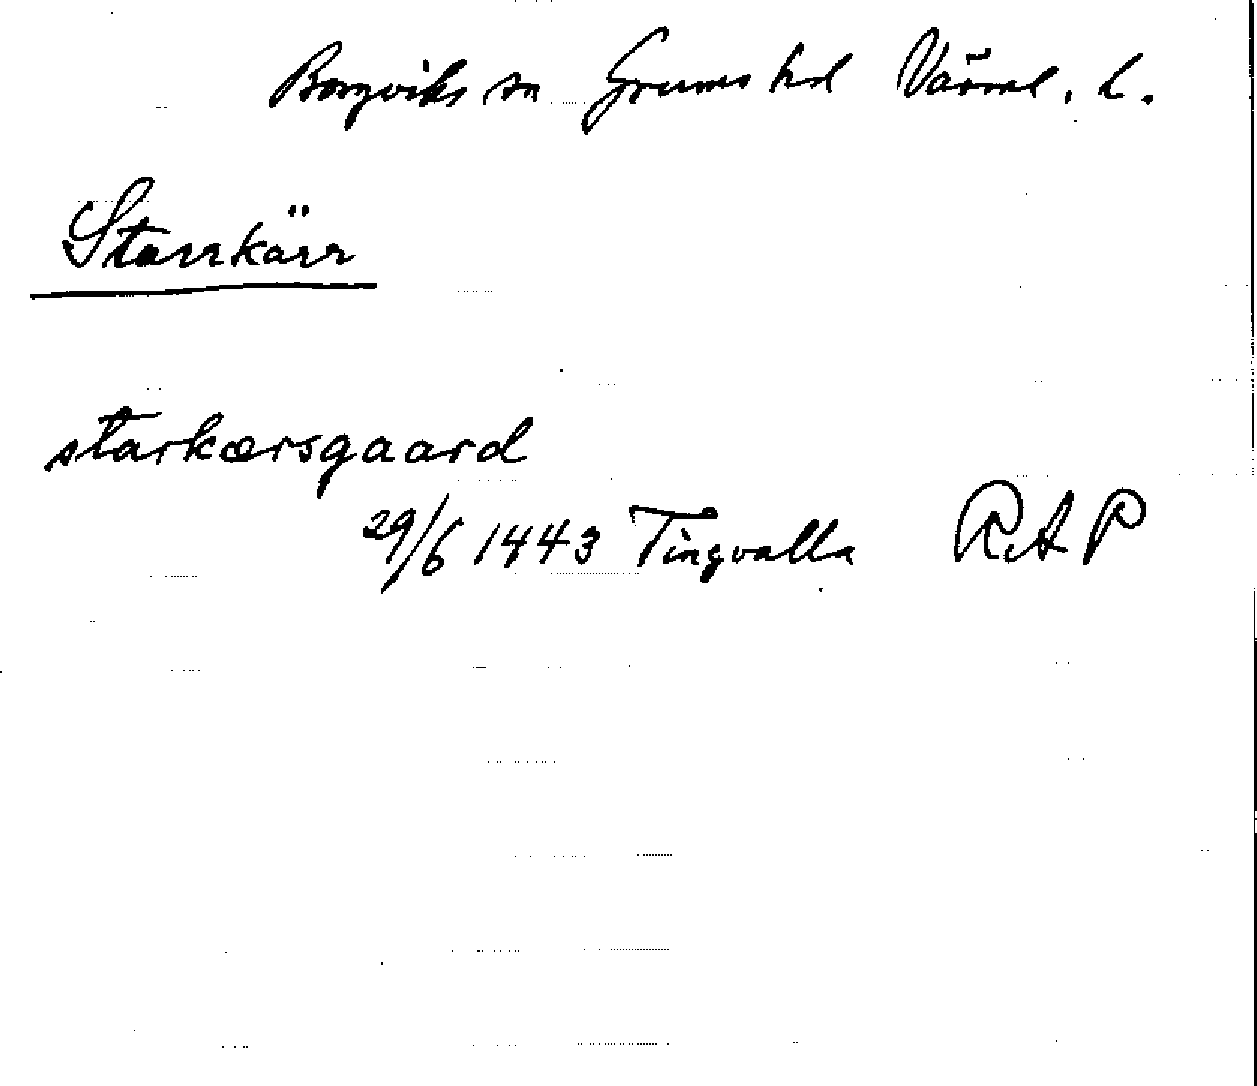 Borgviks sn Grums hd Värml. l.
Starrkärr
starkærsgaard
29/6 1443 Tingvalla RAP